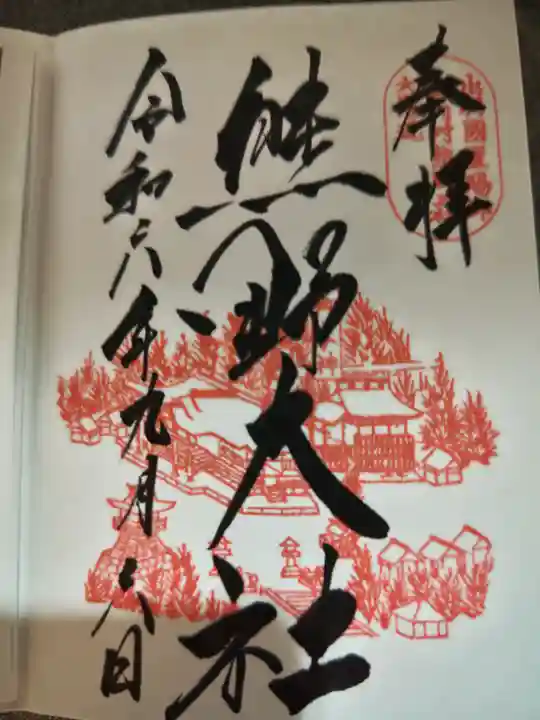 奉拝
熊野大社
令和六年九月六日